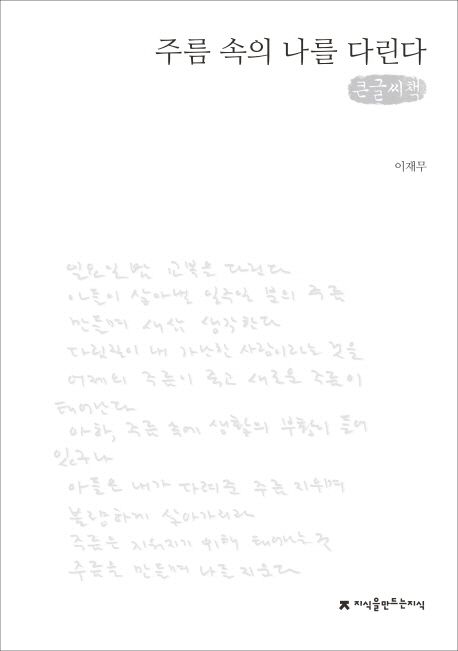 주름 속의 나를 다린다
큰글씨책
이재무
일요일 밤 교복을 다린다
아들이 살아낼 일주일 분의 주름
만들며 새삼 생각한다
다림질이 내 가난한 사랑이라는 것을
어제의 주름이 죽고 새로운 주름이
태어난다
아하, 주름 속에 생활의 부활이 들어
있구나
아들은 내가 다려준 주름 지우며
불량하게 살아가리라
주름은 지워지기 위해 태어나는 것
주름을 만들며 나를 지운다
지식을만드는지식